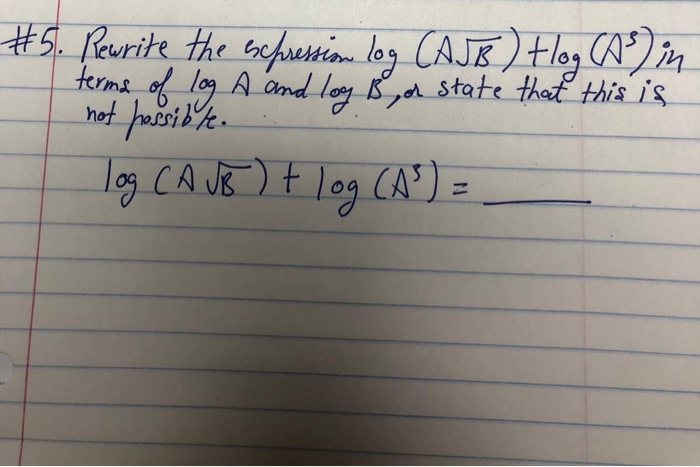 #5. Rewrite the expression log (A√B) + log (A³) in
terms of log A and log B, or state that this is
not possible.
log (A √B) + log (A³) = ______